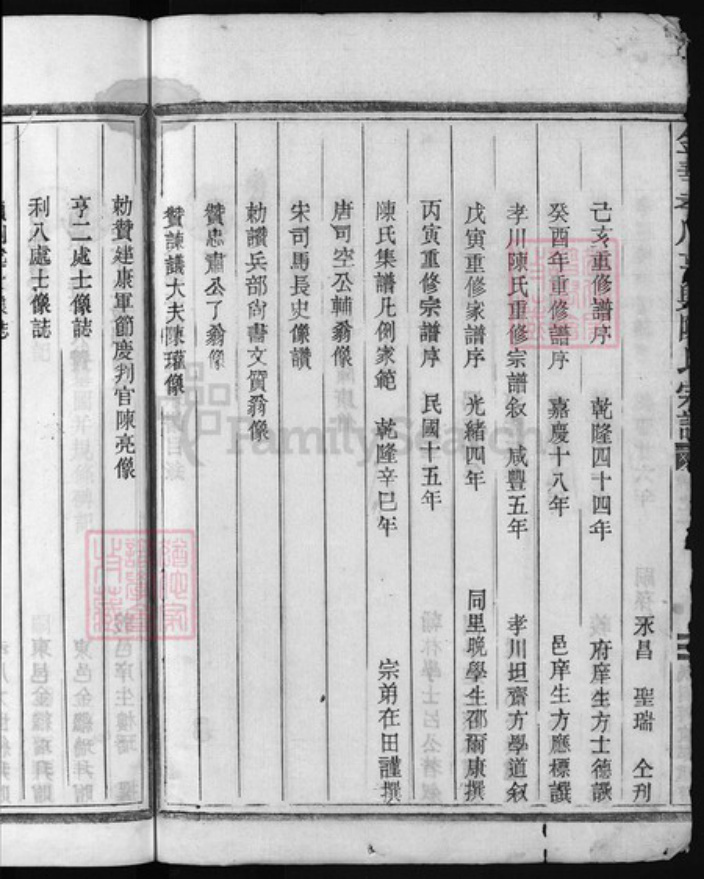 永昌 聖瑞 仝刋
己亥重修譜序 乾隆四十四年 府庠生方士德譔
癸酉年重修譜序 嘉慶十八年 邑庠生方應標譔
孝川陳氏重修宗譜叙 咸豐五年 孝川坦齋方學道叙
戊寅重修家譜序 光緒四年 同里晚學生邵爾康撰
丙寅重修宗譜序 民國十五年
陳氏集譜凡例家範 乾隆辛巳年 宗弟在田謹撰
唐司空公輔翁像
宋司馬長史像讃
勅讃兵部尚書文質翁像
贊忠肅公了翁像
贊諫議大夫陳瓘像
勅贊建康軍節慶判官陳亮像
亨二處士像誌
利八處士像誌
FamilySearch